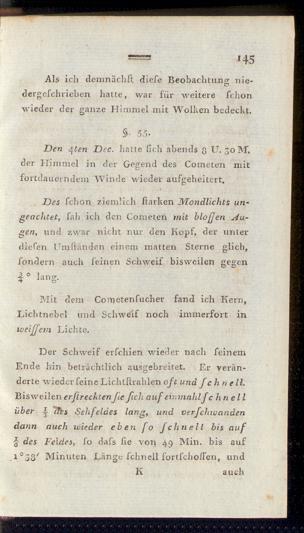 145
Als ich demnächſt dieſe Beobachtung nie-
dergeſchrieben hatte, war für weitere ſchon
wieder der ganze Himmel mit Wolken bedeckt.
§. 55.
Den 4ten Dec. hatte ſich abends 8 U. 30 M.
der Himmel in der Gegend des Cometen mit
fortdauerndem Winde wieder aufgeheitert.
Des ſchon ziemlich ſtarken Mondlichts un-
geachtet, ſah ich den Cometen mit bloſſen Au-
gen, und zwar nicht nur den Kopf, der unter
dieſen Umſtänden einem matten Sterne glich,
ſondern auch ſeinen Schweif bisweilen gegen
¾° lang.
Mit dem Cometenſucher fand ich Kern,
Lichtnebel und Schweif noch immerfort in
weiſſem Lichte.
Der Schweif erſchien wieder nach ſeinem
Ende hin beträchtlich ausgebreitet. Er verän-
derte wieder ſeine Lichtſtrahlen oft und ſchnell.
Bisweilen erſtreckten ſie ſich auf einmahl ſchnell
über des Sehfeldes lang, und verſchwanden
dann auch wieder eben ſo ſchnell bis auf
des Feldes, ſo daſs ſie von 49 Min. bis auf
1° 38′ Minuten Länge ſchnell fortſchoſſen, und
K auch